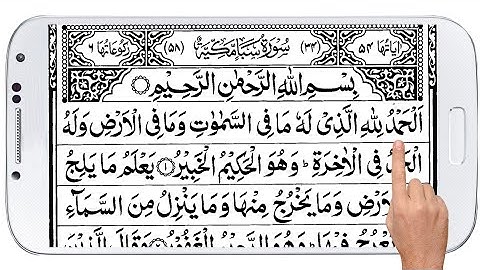 اٰیَاتُهَا ۵۴ (۳۴) سُوْرَةُ سَبَاٍ مَكِّیَّةٌ (۵۸) رُكُوْعَاتُهَا ۶
بِسْمِ اللّٰهِ الرَّحْمٰنِ الرَّحِیْمِ
اَلْحَمْدُ لِلّٰهِ الَّذِیْ لَهٗ مَا فِی السَّمٰوٰتِ وَمَا فِی الْاَرْضِ وَلَهُ
فِی الْاٰخِرَةِ ؕ وَهُوَ الْحَكِیْمُ الْخَبِیْرُ ۝۱ یَعْلَمُ مَا یَلِجُ
الْاَرْضِ وَمَا یَخْرُجُ مِنْهَا وَمَا یَنْزِلُ مِنَ السَّمَآءِ